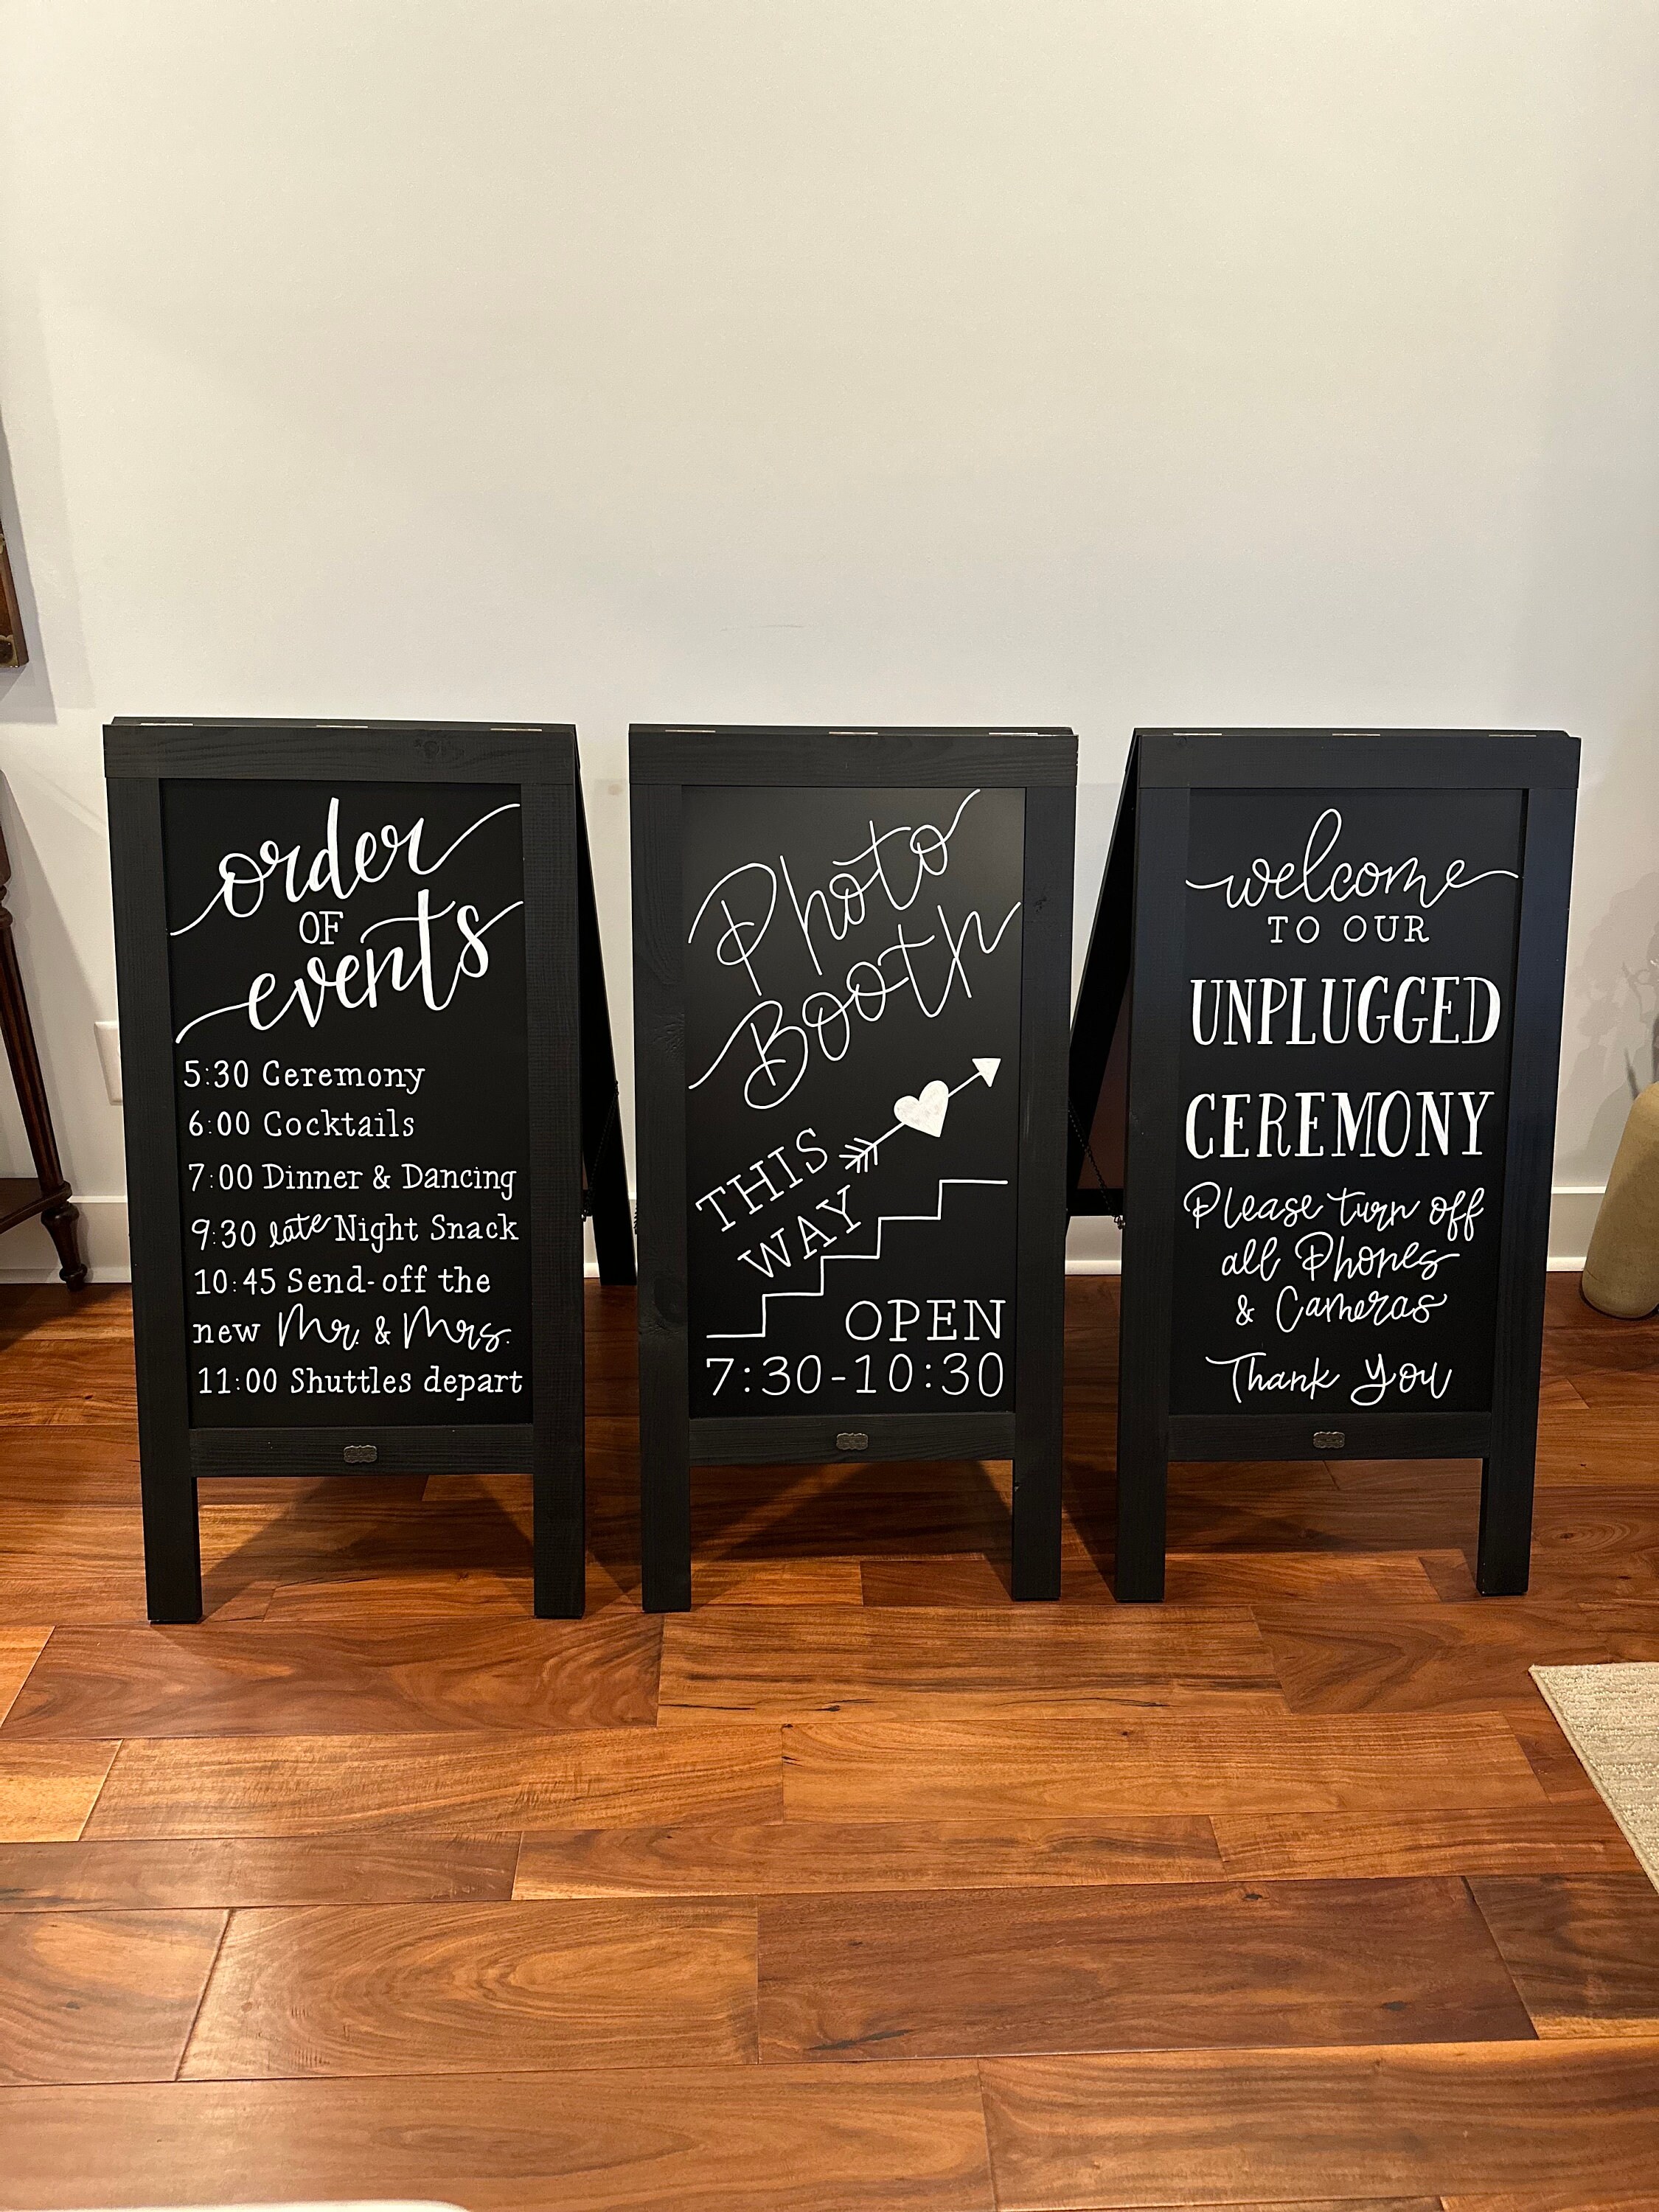 order
OF
events
5:30 Ceremony
6:00 Cocktails
7:00 Dinner & Dancing
9:30 late Night Snack
10:45 Send-off the
new Mr. & Mrs.
11:00 Shuttles depart
Photo
Booth
THIS
WAY
OPEN
7:30-10:30
welcome
TO OUR
UNPLUGGED
CEREMONY
Please turn off
all Phones
& Cameras
Thank You